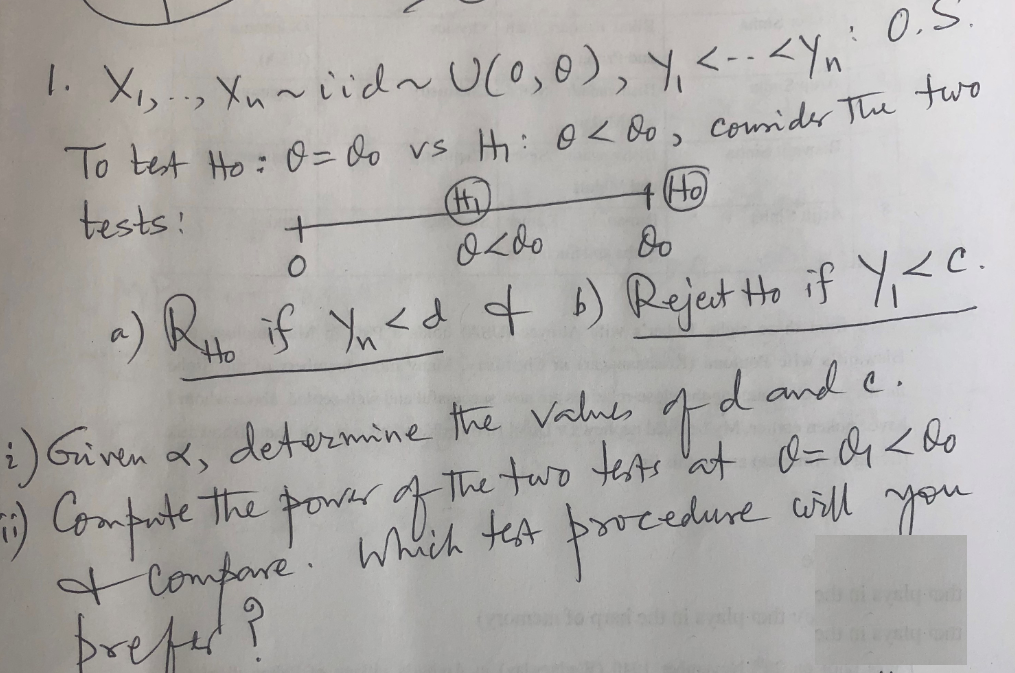 1. X1, .., Xn ~ iid ~ U(0, θ), Y1 < -- < Yn : O.S.
To test Ho : θ = θo vs H1 : θ < θo, consider the two
tests:
H1 Ho
0 θ < θo θo
a) RHo if Yn < d & b) Reject Ho if Y1 < c.
i) Given α, determine the values of d and c.
ii) Compute the power of the two tests at θ = θ1 < θo
& compare. Which test procedure will you
prefer?